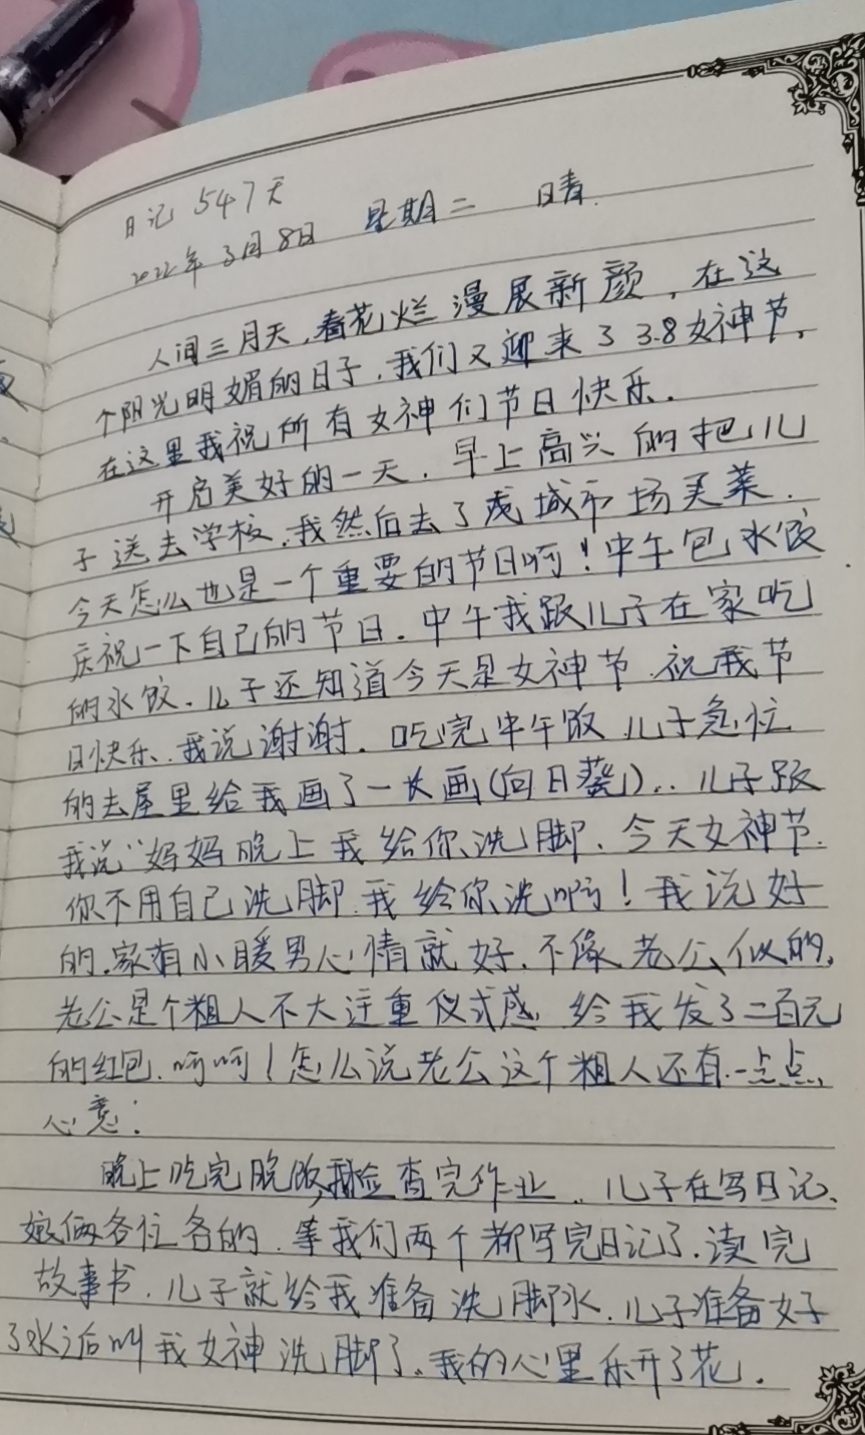 日记 547天
2022年3月8日 星期二 晴.
人间三月天,春花烂漫展新颜,在这
个阳光明媚的日子,我们又迎来了3.8女神节,
在这里我祝所有女神们节日快乐.
开启美好的一天.早上高兴的把儿
子送去学校,我然后去了虎城市场买菜.
今天怎么也是一个重要的节日啊!中午包水饺
庆祝一下自己的节日.中午我跟儿子在家吃
的水饺.儿子还知道今天是女神节.祝我节
日快乐.我说谢谢.吃完中午饭儿子急忙
的去屋里给我画了一长画(向日葵)..儿子跟
我说“妈妈晚上我给你洗脚.今天女神节.
你不用自己洗脚.我给你洗啊!我说好
的.家有小暖男心情就好.不像老公似的,
老公是个粗人不大注重仪式感.给我发了二百元
的红包.呵呵!怎么说老公这个粗人还有一点点
心意.
晚上吃完晚饭,我检查完作业..儿子在写日记、
娘俩各位各的.等我们两个都写完日记了.读完
故事书.儿子就给我准备洗脚水.儿子准备好
了水之后叫我女神洗脚了.我的心里乐开了花.